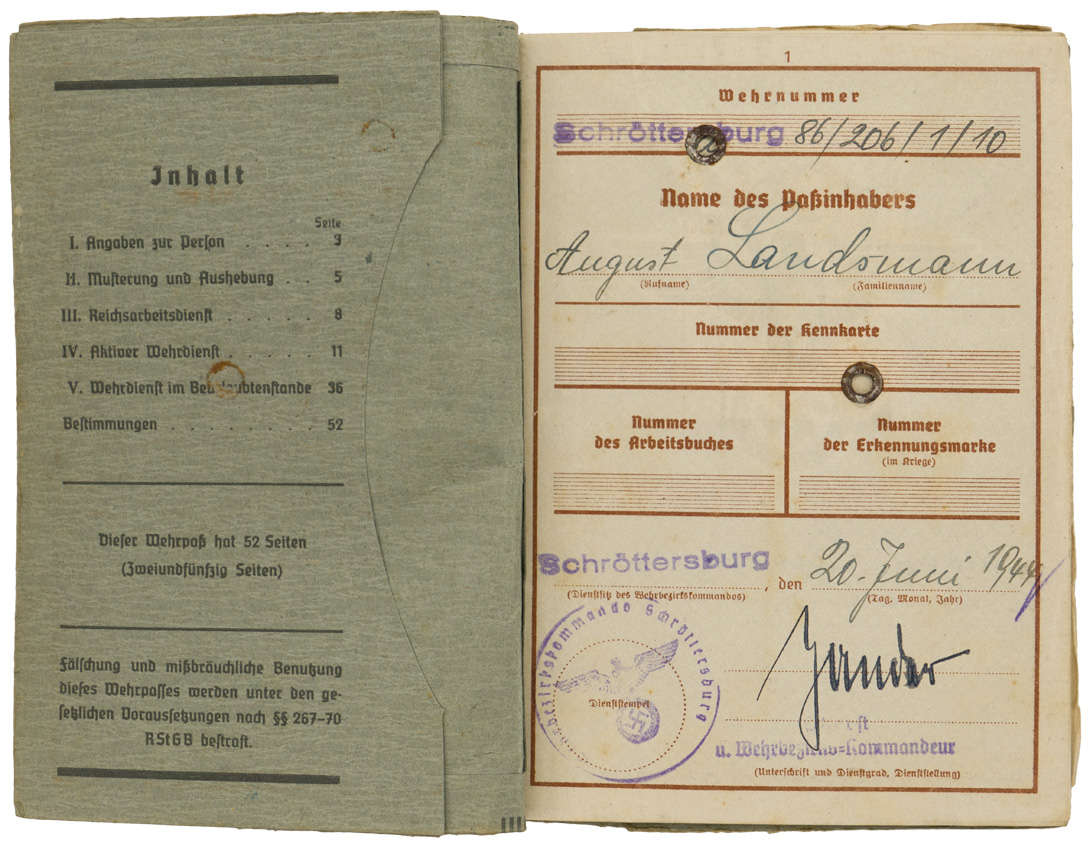 Inhalt
Seite
I. Angaben zur Person . . . . 3
II. Musterung und Aushebung . . 5
III. Reichsarbeitsdienst . . . . . 8
IV. Aktiver Wehrdienst . . . . . 11
V. Wehrdienst im Beurlaubtenstande 36
Bestimmungen . . . . . . . . 52
Dieser Wehrpaß hat 52 Seiten
(Zweiundfünfzig Seiten)
Fälschung und mißbräuchliche Benutzung
dieses Wehrpasses werden unter den ge-
setzlichen Voraussetzungen nach §§ 267–70
RStGB bestraft.
1
Wehrnummer
Schröttersburg 86/206/1/10
Name des Paßinhabers
August Landsmann
(Rufname) (Familienname)
Nummer der Kennkarte
Nummer
des Arbeitsbuches
Nummer
der Erkennungsmarke
(im Kriege)
Schröttersburg, den 20. Juni 1944
(Dienstsitz des Wehrbezirkskommandos) (Tag, Monat, Jahr)
bezirkskommando Schröttersburg
Dienststempel
u. Wehrbezirks=Kommandeur
(Unterschrift und Dienstgrad, Dienststellung)